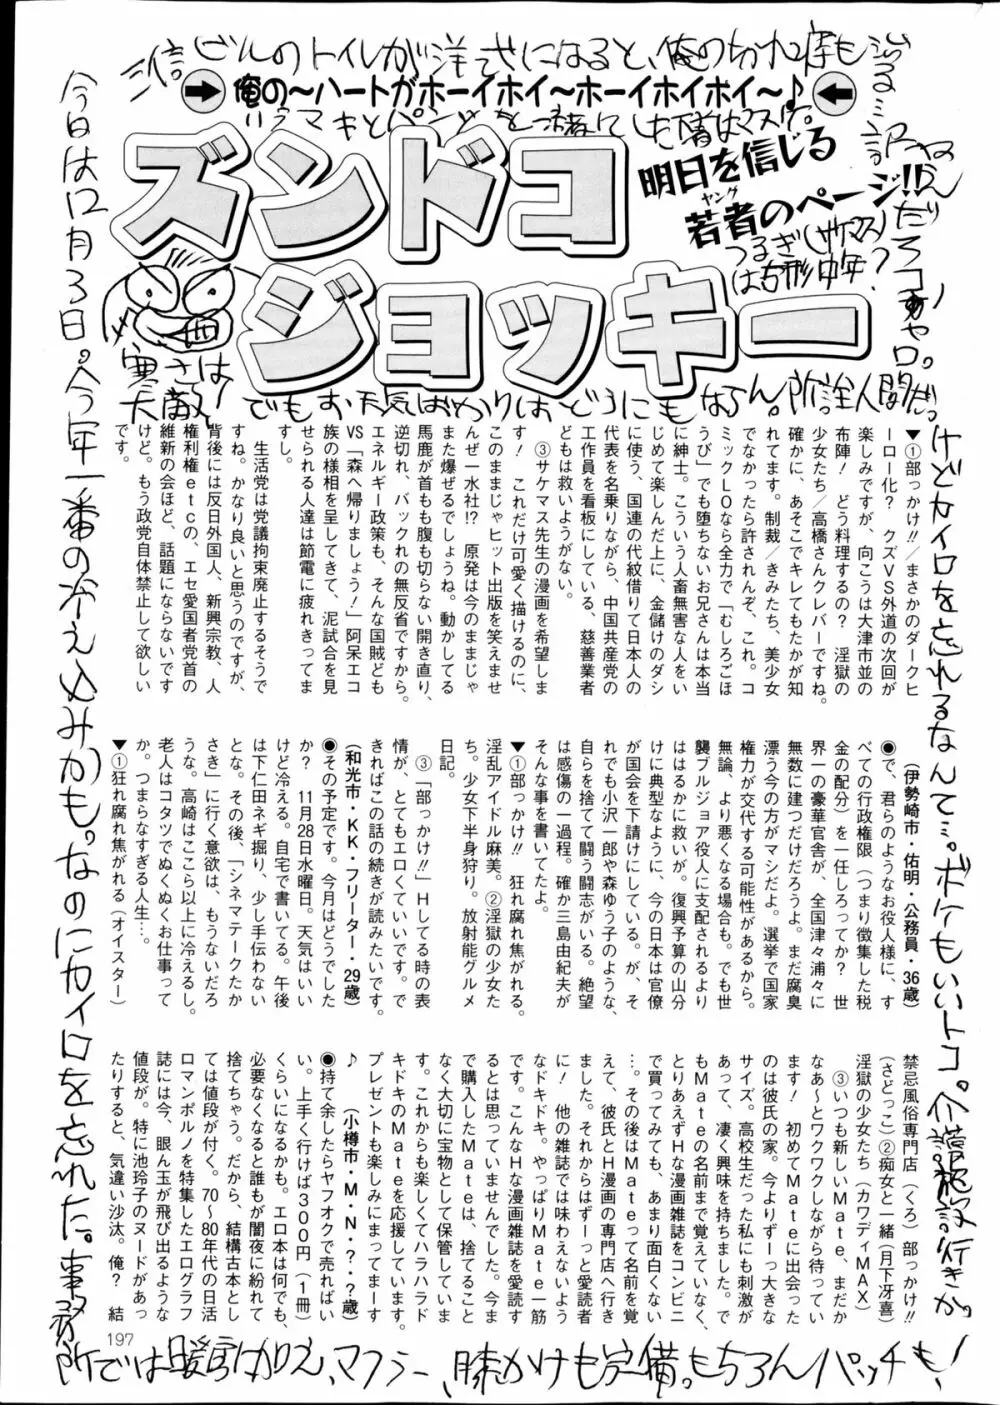 三信ビルのトイレが洋式になると、俺の切れ痔も治る…
俺の～ハートがホーイホイ～ホーイホイホイ～♪
ズンドコ
ジョッキー
明日を信じる
若者のページ!!
ヤング
つるぎ(サケマス)
は古形中年?
寒さは
天敵!
でもお天気ばかりはどうにもならん。所詮人間だ。
今日は12月3日。今年一番の冷え込みかも。なのにカイロを忘れた。事務
所では暖房に加え、マフラー、膝かけも完備。もちろんパッチも!
けどカイロを忘れるなんて…。ボケもいいトコ。介護施設行きか。
▼①部っかけ!!／まさかのダークヒ
ーロー化？　クズVS外道の次回が
楽しみですが、向こうは大津市並の
布陣！　どう料理するの？　淫獄の
少女たち／高橋さんクレバーですね。
確かに、あそこでキレてもたかが知
れてます。制裁／きみたち、美少女
でなかったら許されんぞ、これ。コ
ミックLOなら全力で「むしろごほ
うび」でも堕ちないお兄さんは本当
に紳士。こういう人畜無害な人をい
じめて楽しんだ上に、金儲けのダシ
に使う、国連の代紋借りて日本人の
代表を名乗りながら、中国共産党の
工作員を看板にしている、慈善業者
どもは救いようがない。
③サケマス先生の漫画を希望しま
す！　これだけ可愛く描けるのに、
このままじゃヒット出版を笑えませ
んぜ一水社!?　原発は今のままじゃ
また爆ぜるでしょうね。動かしてる
馬鹿が首も腹も切らない開き直り、
逆切れ、バックれの無反省ですから。
エネルギー政策も、そんな国賊ども
VS「森へ帰りましょう！」阿呆エコ
族の様相を呈してきて、泥試合を見
せられる人達は節電に疲れきってま
すし。
生活党は党議拘束廃止するそうで
すね。かなり良いと思うのですが、
背後には反日外国人、新興宗教、人
権利権etcの、エセ愛国者党首の
維新の会ほど、話題にならないです
けど。もう政党自体禁止して欲しい
です。
（伊勢崎市・佑明・公務員・36歳）
●で、君らのようなお役人様に、す
べての行政権限（つまり徴集した税
金の配分）を一任しろってか？　世
界一の豪華官舎が、全国津々浦々に
無数に建つだけだろうよ。まだ腐臭
漂う今の方がマシだよ。選挙で国家
権力が交代する可能性があるから。
無論、より悪くなる場合も。でも世
襲ブルジョア役人に支配されるより
ははるかに救いが。復興予算の山分
けに典型なように、今の日本は官僚
が国会を下請けにしている。が、そ
れでも小沢一郎や森ゆう子のような、
自らを捨てて闘う闘志がいる。絶望
は感傷の一過程。確か三島由紀夫が
そんな事を書いてたよ。
▼①部っかけ!!　狂れ腐れ焦がれる。
淫乱アイドル麻美。②淫獄の少女た
ち。少女下半身狩り。放射能グルメ
日記。
③「部っかけ!!」Hしてる時の表
情が、とてもエロくていいです。で
きればこの話の続きが読みたいです。
（和光市・KK・フリーター・29歳）
●その予定です。今月はどうでした
か？　11月28日水曜日。天気はいい
けど冷える。自宅で書いてる。午後
は下仁田ネギ掘り、少し手伝わない
とな。その後、「シネマテークたか
さき」に行く意欲は、もうないだろ
うな。高崎はここら以上に冷えるし。
老人はコタツでぬくぬくお仕事って
か。つまらなすぎる人生…。
▼①狂れ腐れ焦がれる（オイスター）
禁忌風俗専門店（くろ）部っかけ!!
（さどっこ）②痴女と一緒（月下冴喜）
淫獄の少女たち（カワディMAX）
③いつも新しいMate、まだか
なあ～とワクワクしながら待ってい
ます！　初めてMateに出会った
のは彼氏の家。今よりずーっ大きな
サイズ。高校生だった私にも刺激が
あって、凄く興味を持ちました。で
もMateの名前まで覚えていなく、
とりあえずHな漫画雑誌をコンビニ
で買ってみても、あまり面白くない
…。その後はMateって名前を覚
えて、彼氏とH漫画の専門店へ行き
ました。それからはずーっと愛読者
に！　他の雑誌では味わえないよう
なドキドキ。やっぱりMate一筋
です。こんなHな漫画雑誌を愛読す
るとは思っていませんでした。今ま
で購入したMateは、捨てること
なく大切に宝物として保管していま
す。これからも楽しくてハラハラド
キドキのMateを応援しています。
プレゼントも楽しみにまってまーす
♪　（小樽市・M・N・？・？歳）
●持て余したらヤフオクで売ればい
い。上手く行けば300円（1冊）
くらいになるかも。エロ本は何でも、
必要なくなると誰もが闇夜に紛れて
捨てちゃう。だから、結構古本とし
ては値段が付く。70～80年代の日活
ロマンポルノを特集したエログラフ
誌には今、眼ん玉が飛び出るような
値段が。特に池玲子のヌードがあっ
たりすると、気違い沙汰。俺？　結
197